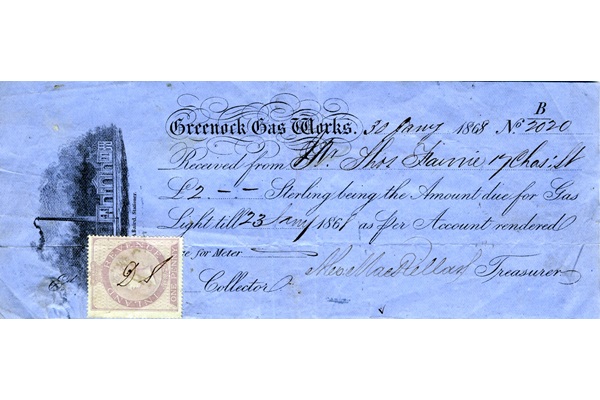 B
Greenock Gas Works. 30 Jany 1868 No 2020
Received from Mr Thos Fairrie 17 Chas: St
£2 - - Sterling being the Amount due for Gas
Light till 23 Jany 1868 as per Account rendered
for Meter
Collector Treasurer
INLAND REVENUE
D S